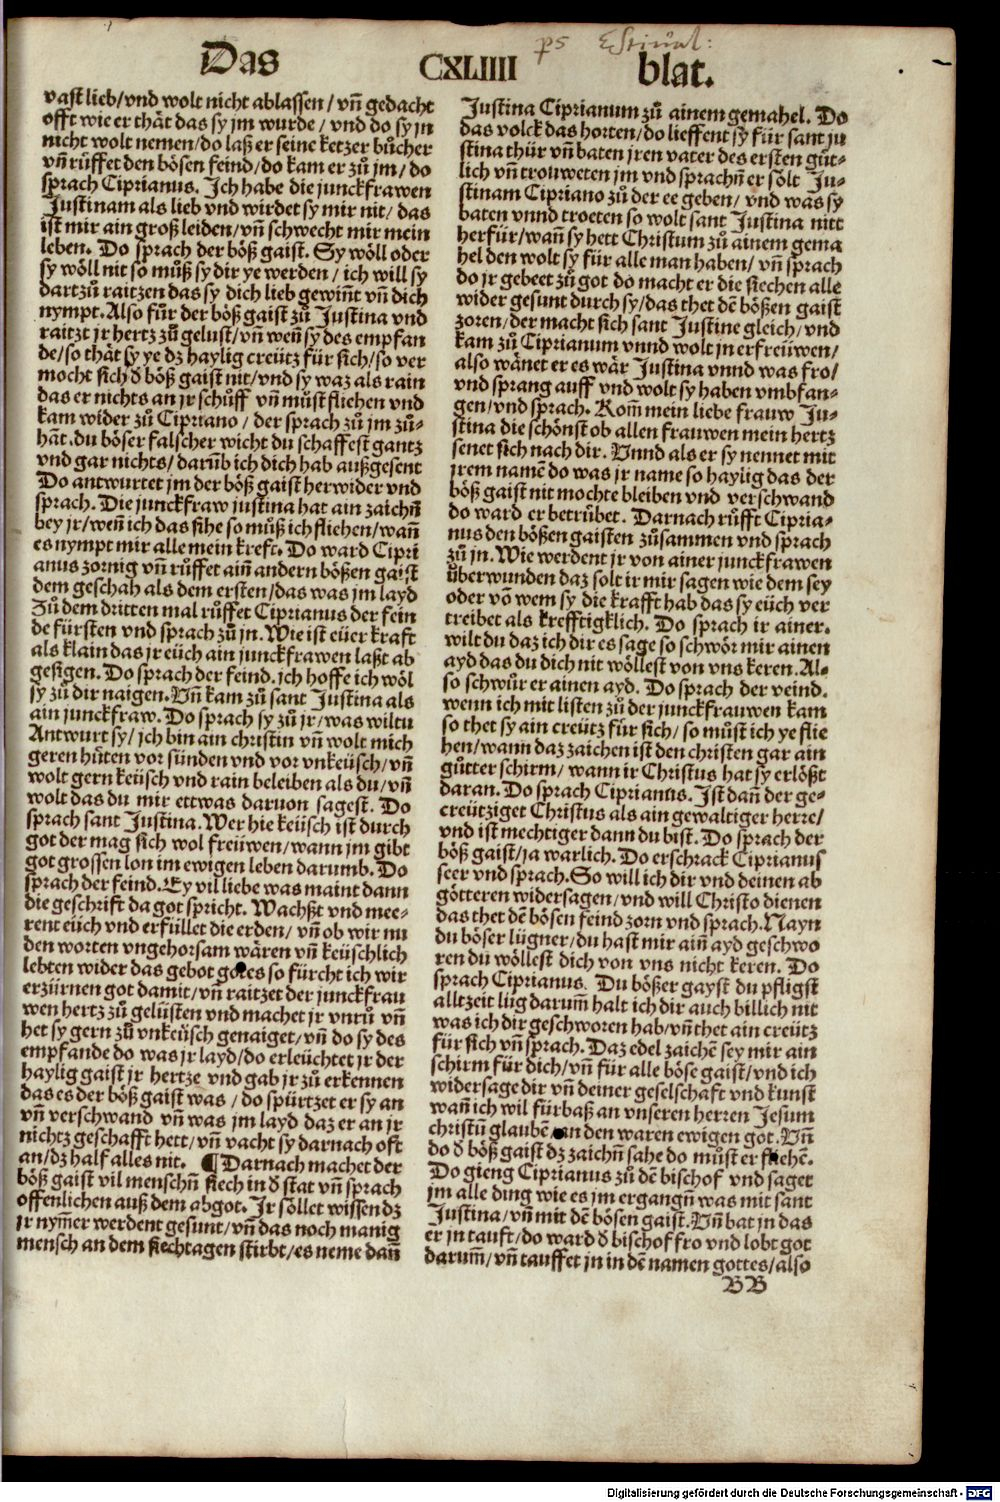 Das CXLIIII blat.
vast lieb/vnd wolt nicht ablassen/vñ gedacht
offt wie er thât das sy jm wurde/vnd do sy jn
nicht wolt nemen/do laß er seine ketzer bůcher
vñ růffet den bösen feind/do kam er zů jm/do
sprach Ciprianus. Ich habe die junckfrawen
Justinam als lieb vnd wirdet sy mir nit/das
ist mir ain groß leiden/vñ schwecht mir mein
leben. Do sprach der böß gaist. Sy wöll oder
sy wöll nit so můß sy dir ye werden/ich will sy
dartzů raitzen das sy dich lieb gewiñt vñ dich
nympt. Also fůr der böß gaist zů Justina vnd
raitzt jr hertz zů gelust/vñ weñ sy des empfan
de/so thât sy ye dz haylig creütz für sich/so ver
mocht sich d̄ böß gaist nit/vnd sy waz als rain
das er nichts an jr schůff vñ můst fliehen vnd
kam wider zů Cipriano/der sprach zů jm zů-
hãt. du böser falscher wicht du schaffest gantz
vnd gar nichts/darũb ich dich hab außgesent
Do antwurtet jm der böß gaist herwider vnd
sprach. Die junckfraw justina hat ain zaichñ
bey jr/weñ ich das sihe so můß ich fliehen/wañ
es nympt mir alle mein kreft. Do ward Cipri
anus zornig vñ růffet aiñ andern bößen gaist
dem geschah als dem ersten/das was jm layd
Zů dem dritten mal růffet Ciprianus der fein
de fürsten vnd sprach zů jn. Wie ist eüer kraft
als klain das jr eüch ain junckfrawen laßt ab
gesigen. Do sprach der feind. jch hoffe ich wöl
sy zů dir naigen. Vñ kam zů sant Justina als
ain junckfraw. Do sprach sy zů jr/was wiltu
Antwurt sy/jch bin ain christin vñ wolt mich
geren hůten vor sünden vnd vor vnkeüsch/vñ
wolt gern keüsch vnd rain beleiben als du/vñ
wolt das du mir ettwas daruon sagest. Do
sprach sant Justina. Wer hie keüsch ist durch
got der mag sich wol freüwen/wann jm gibt
got grossen lon im ewigen leben darumb. Do
sprach der feind. Ey vil liebe was maint dann
die geschrift da got spricht. Wachßt vnd mee-
rent eüch vnd erfüllet die erden/vñ ob wir nu
den worten vngehorsam wären vñ keüschlich
lebten wider das gebot gotes so fürcht ich wir
erzürnen got damit/vñ raitzet der junckfrau
wen hertz zů gelüsten vnd machet jr vnrů vñ
het sy gern zů vnkeüsch genaiget/vñ do sy des
empfande do was jr layd/do erleüchtet jr der
haylig gaist jr hertze vnd gab jr zů erkennen
das es der böß gaist was/do spürtzet er sy an
vñ verschwand vñ was jm layd daz er an jr
nichtz geschafft hett/vñ vacht sy darnach oft
an/dz half alles nit. ¶ Darnach machet der
böß gaist vil menschñ siech in d̄ stat vñ sprach
offenlichen auß dem abgot. Jr söllet wissen dz
jr nym̃er werdent gesunt/vñ das noch manig
mensch an dem siechtagen stirbt/es neme dañ
Justina Ciprianum zů ainem gemahel. Do
das volck das horten/do lieffent sy für sant ju
stina thür vñ baten jren vater des ersten gůt-
lich vñ trouweten jm vnd sprachñ er sölt Ju-
stinam Cipriano zů der ee geben/vnd was sy
baten vnnd troeten so wolt sant Justina nitt
herfür/wañ sy hett Christum zů ainem gema
hel den wolt sy für alle man haben/vñ sprach
do jr gebeet zů got do macht er die siechen alle
wider gesunt durch sy/das thet dē bößen gaist
zoren/der macht sich sant Justine gleich/vnd
kam zů Ciprianum vnnd wolt jn erfreüwen/
also wänet er es wär Justina vnnd was fro/
vnd sprang auff vnd wolt sy haben vmbfan-
gen/vnd sprach. Kom̃ mein liebe frauw Ju-
stina die schönst ob allen frauwen mein hertz
senet sich nach dir. Vnnd als er sy nennet mit
jrem namē do was jr name so haylig das der
böß gaist nit mochte bleiben vnd verschwand
do ward er betrůbet. Darnach růfft Cipria-
nus den bößen gaisten zůsammen vnd sprach
zů jn. Wie werdent jr von ainer junckfrawen
überwunden daz solt ir mir sagen wie dem sey
oder võ wem sy die krafft hab das sy eüch ver
treibet als krefftigklich. Do sprach ir ainer.
wilt du daz ich dir es sage so schwör mir ainen
ayd das du dich nit wöllest von vns keren. Al-
so schwůr er ainen ayd. Do sprach der veind.
wenn ich mit listen zů der junckfrauwen kam
so thet sy ain creütz für sich/so můst ich ye flie
hen/wann daz zaichen ist den christen gar ain
gůtter schirm/wann ir Christus hat sy erlößt
daran. Do sprach Ciprianus. Jst dañ der ge-
creützиget Christus als ain gewaltiger herre/
vnd ist mechtiger dann du bist. Do sprach der
böß gaist/ja warlich. Do erschrack Ciprianus
seer vnd sprach. So will ich dir vnd deinen ab
götteren widersagen/vnd will Christo dienen
das thet dē bösen feind zorn vnd sprach. Nayn
du böser lügner/du hast mir aiñ ayd geschwo
ren du wöllest dich von vns nicht keren. Do
sprach Ciprianus. Du bößer gayst du pfligst
alltzeit lüg darum̃ halt ich dir auch billich nit
was ich dir geschworen hab/vñ thet ain creütz
für sich vñ sprach. Daz edel zaichē sey mir ain
schirm für dich/vñ für alle böse gaist/vnd ich
widersage dir vñ deiner geselschaft vnd kunst
wañ ich wil fürbaß an vnseren herren Jesum
christũ glaubē an den waren ewigen got. Vñ
do d̄ böß gaist dz zaichñ sahe do můst er fliehē.
Do gieng Ciprianus zů dē bischof vnd saget
jm alle ding wie es jm ergangñ was mit sant
Justina/vñ mit dē bösen gaist. Vñ bat jn das
er jn tauft/do ward d̄ bischof fro vnd lobt got
darum̃/vñ tauffet jn in dē namen gottes/also
BB
Digitalisierung gefördert durch die Deutsche Forschungsgemeinschaft - DFG